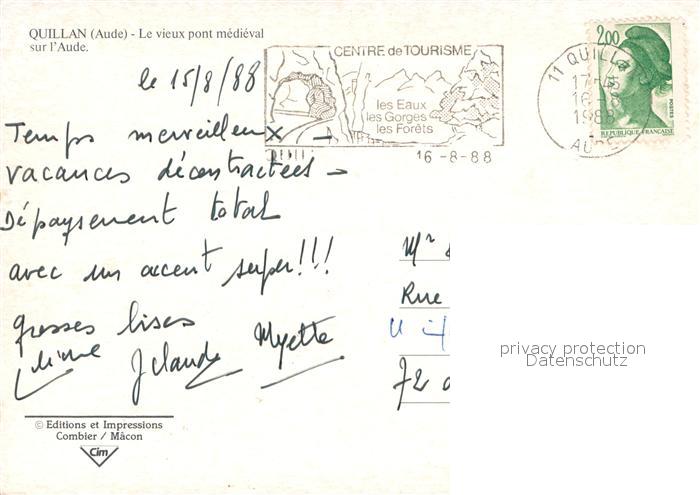 QUILLAN (Aude) - Le vieux pont médiéval
sur l'Aude.
le 15/8/88
Temps merveilleux -
vacances décontractées -
Dépaysement total
avec un accent super!!!
grosses bises
Jclaude Myette
CENTRE de TOURISME
les Eaux
les Gorges
les Forêts
16-8-88
11 QUILLAN
17-
16-
1988
AUDE
2,00
POSTES
REPUBLIQUE FRANÇAISE
Mr
Rue
72
privacy protection
Datenschutz
© Editions et Impressions
Combier / Mâcon
Cim